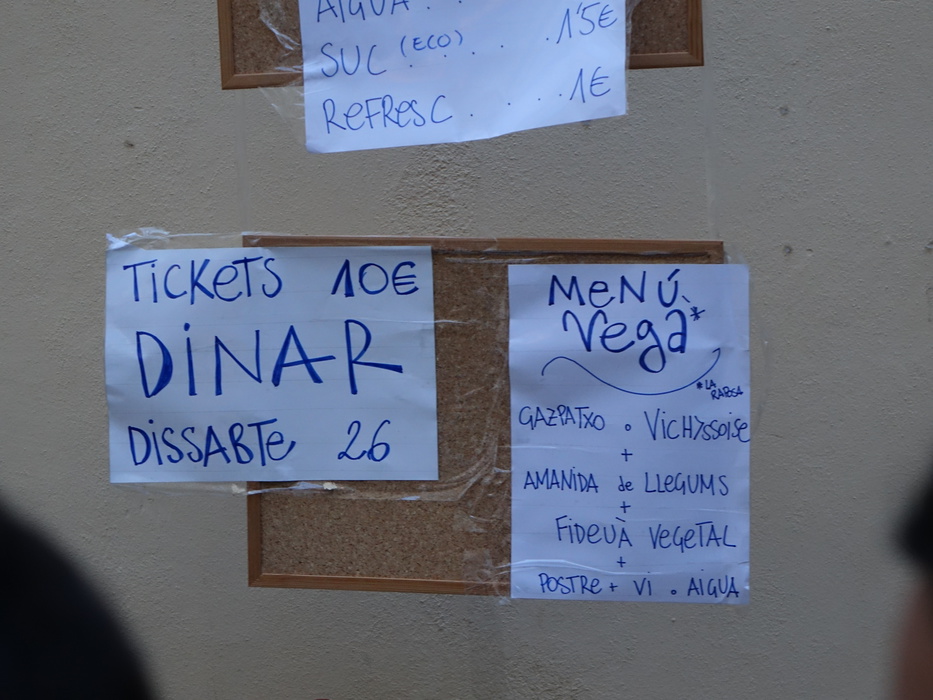 AIGUA . .
SUC (ECO) . . . 1'5€
REFRESC . . . . 1€
TICKETS 10€
DINAR
DISSABTE 26
MENÚ
Vegà*
*LA
RAPOSA
GAZPATXO o VICHYSSOISE
+
AMANIDA de LLEGUMS
+
FIDEUÀ VEGETAL
+
POSTRE + VI o AIGUA